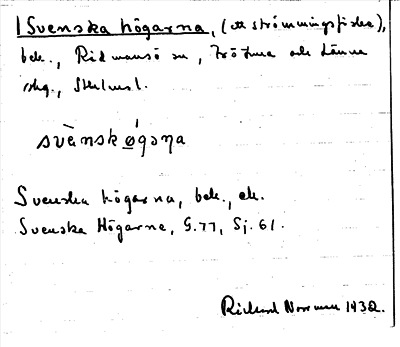 Svenska högarna, (ett strömmingsfiske),
bek., Rådmansö sn, Frötuna och Länna
skg., Sthlms l.
svènskøgəɳa
Svenska högarna, bek., ek.
Svenska Högarne, G.77, Sj. 61.
Richard Norrman 1932.